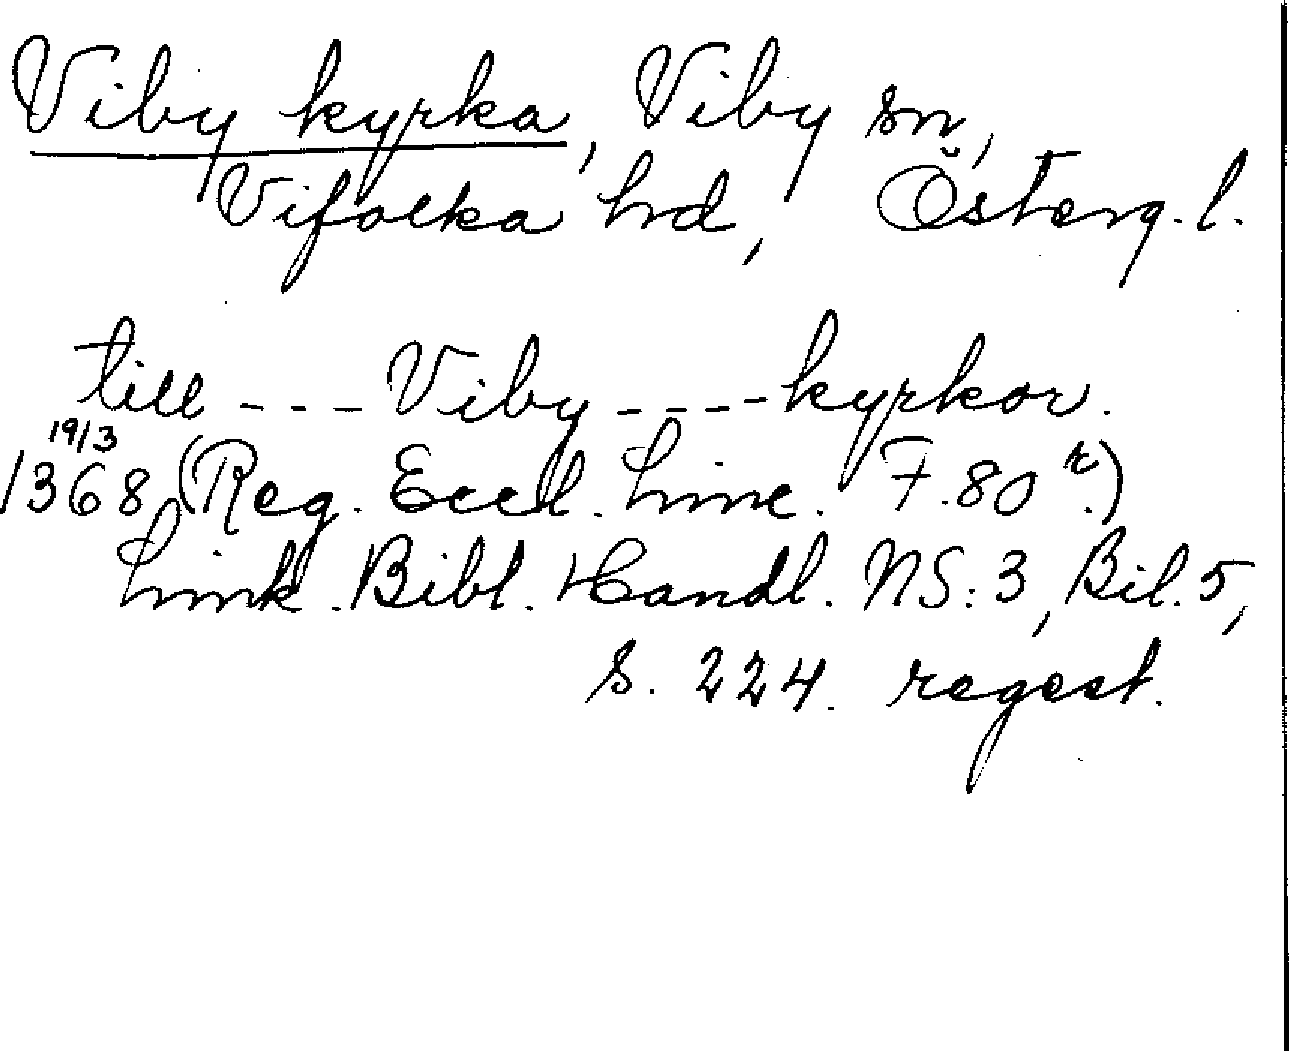 Viby kyrka, Viby sn,
Vifolka hd, Österg. l.
till - - - Viby - - - - kyrkor.
19/3
1368 (Reg. Eccl. Linc. F. 80 r.)
Link. Bibl. Handl. NS: 3, Bil. 5,
s. 224. regest.